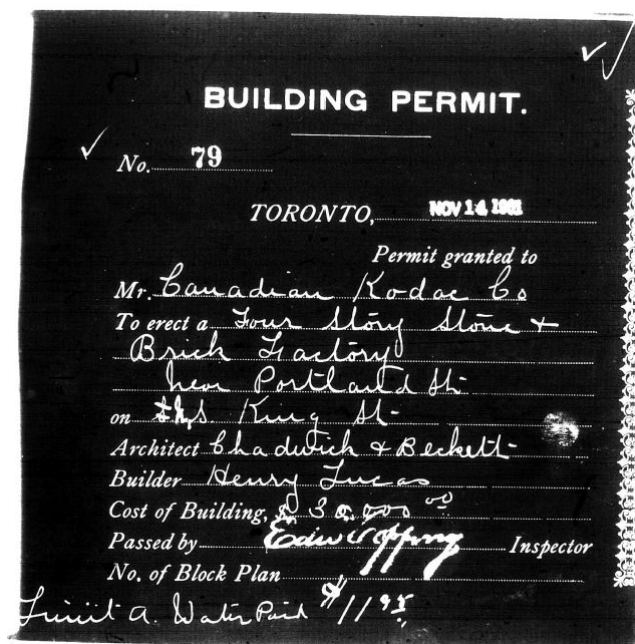 BUILDING PERMIT.
No. 79
TORONTO, NOV 14 1901
Permit granted to
Mr. Canadian Kodac Co
To erect a Four Story Stone +
Brick Factory
near Portland St
on King St
Architect Chadwick & Beckett
Builder Henry Lucas
Cost of Building, $ 30,000 00
Passed by Inspector
No. of Block Plan
Limit A. Water Paid $11 95